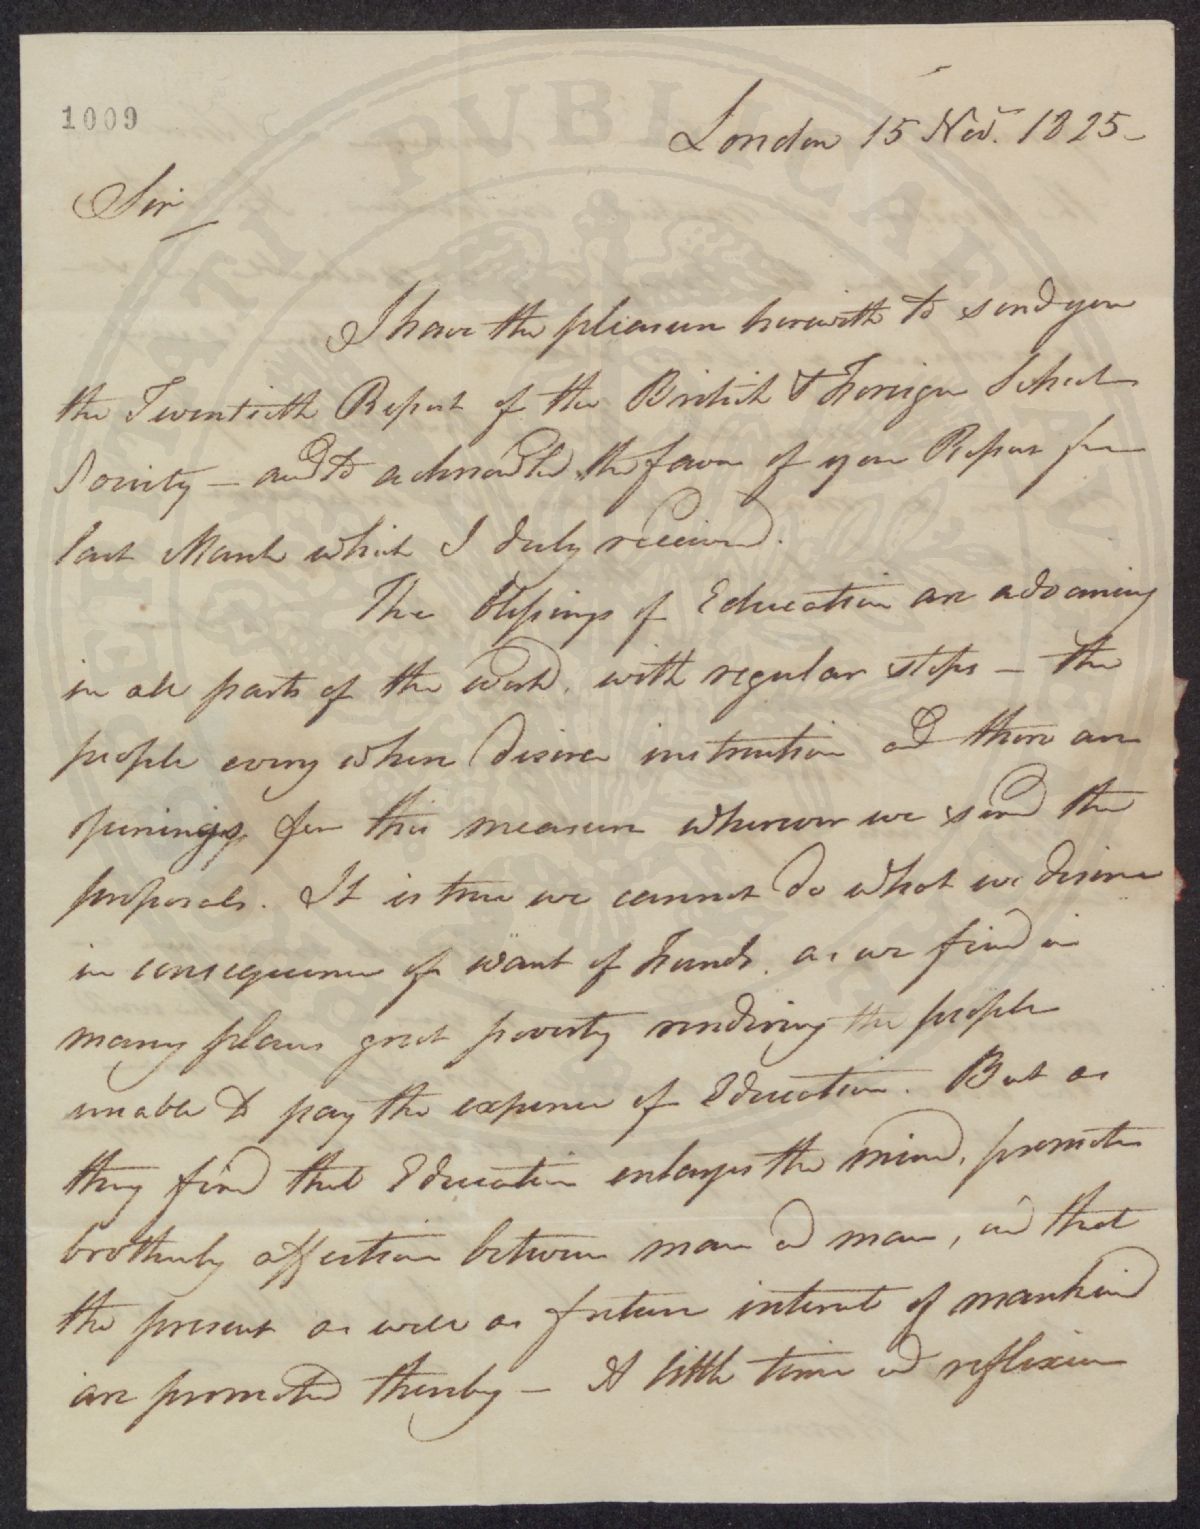 1009
London 15 Novr. 1825 -
Sir
I have the pleasure herewith to send you
the Twentieth Report of the British & Foreign School
Society - and to acknowledge the favor of your Report for
last March which I duly received.
The blessings of Education are advancing
in all parts of the world, with regular steps - the
people every where desires instruction and there are
openings for this measure wherever we send the
proposals. It is true we cannot do what we desire
in consequence of want of Funds, as we find in
many places great poverty rendering the people
unable to pay the expence of Education. But as
they find that Education enlarges the mind, promotes
brotherly affection between man and man, and that
the present as well as future interest of mankind
are promoted thereby - A little time and reflexion